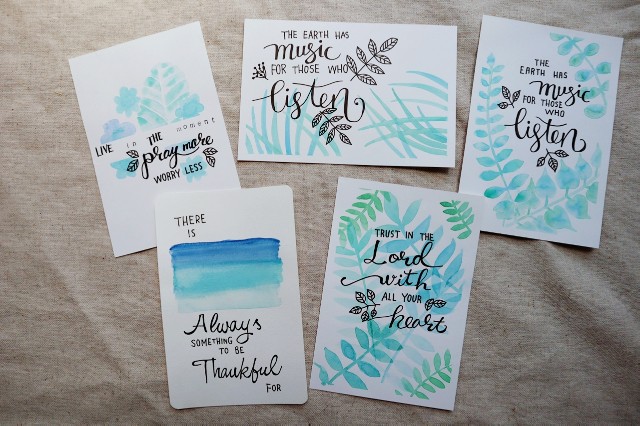 LIVE in THE moment
pray more
WORRY LESS
THE EARTH HAS
music
FOR THOSE WHO
listen
THE
EARTH HAS
music
FOR THOSE
WHO
listen
THERE
IS
Always
SOMETHING
TO BE
Thankful
FOR
TRUST IN THE
Lord
with
ALL YOUR
heart